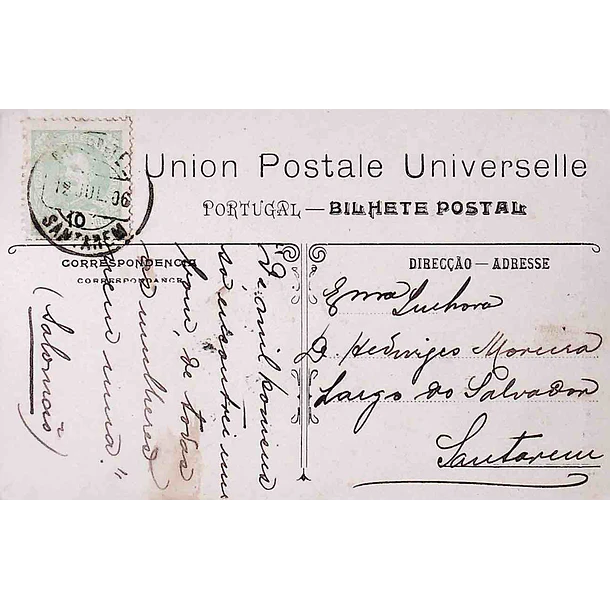 12 JUL. 06
10
SANTAREM
Union Postale Universelle
PORTUGAL — BILHETE POSTAL
CORRESPONDENCIA
CORRESPONDANCE
DIRECÇÃO — ADRESSE
"De mil homens
so encontrei um
bom, de todas
as mulheres
nem uma."
(Salomão)
Exma Senhora
D. Hedwiges Moreira
Largo do Salvador
Santarem